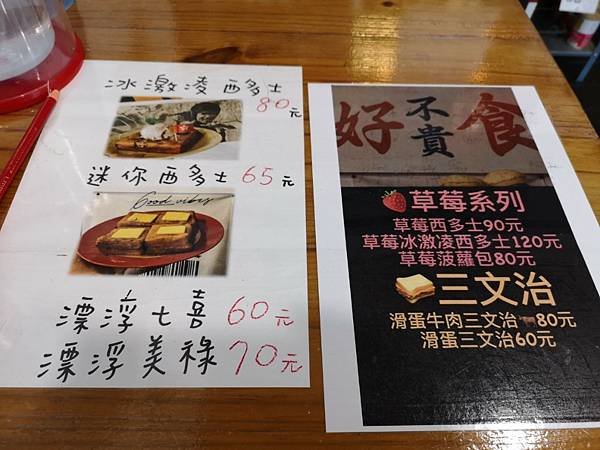 冰激凌西多士
80元
迷你西多士 65元
Good vibes
漂浮七喜 60元
漂浮美祿 70元
好不貴食
草莓系列
草莓西多士90元
草莓冰激凌西多士120元
草莓菠蘿包80元
三文治
滑蛋牛肉三文治80元
滑蛋三文治60元